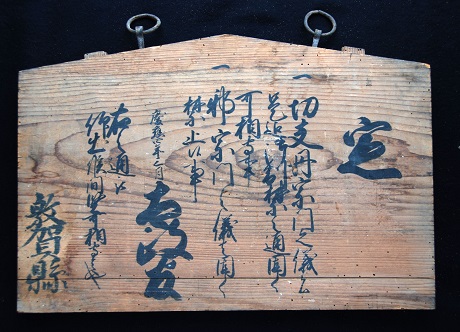 定
一 切支丹宗門之儀は
是迄御制禁之通固く
可相守事
一 邪宗門之儀は固く
禁止候事
慶應四年三月
太政官
右之通被
仰出候間可相守
敦賀縣